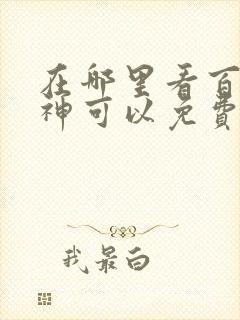 在哪里看百
神可以免費
我最白